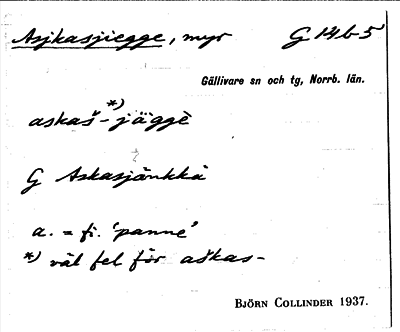 Asjkasjiegge, myr G 14b5
Gällivare sn och tg, Norrb. län.
askaš-*) jäggè
G Askasjänkkä
a. = fi. 'panne'
*) väl fel för aškas-
BJÖRN COLLINDER 1937.